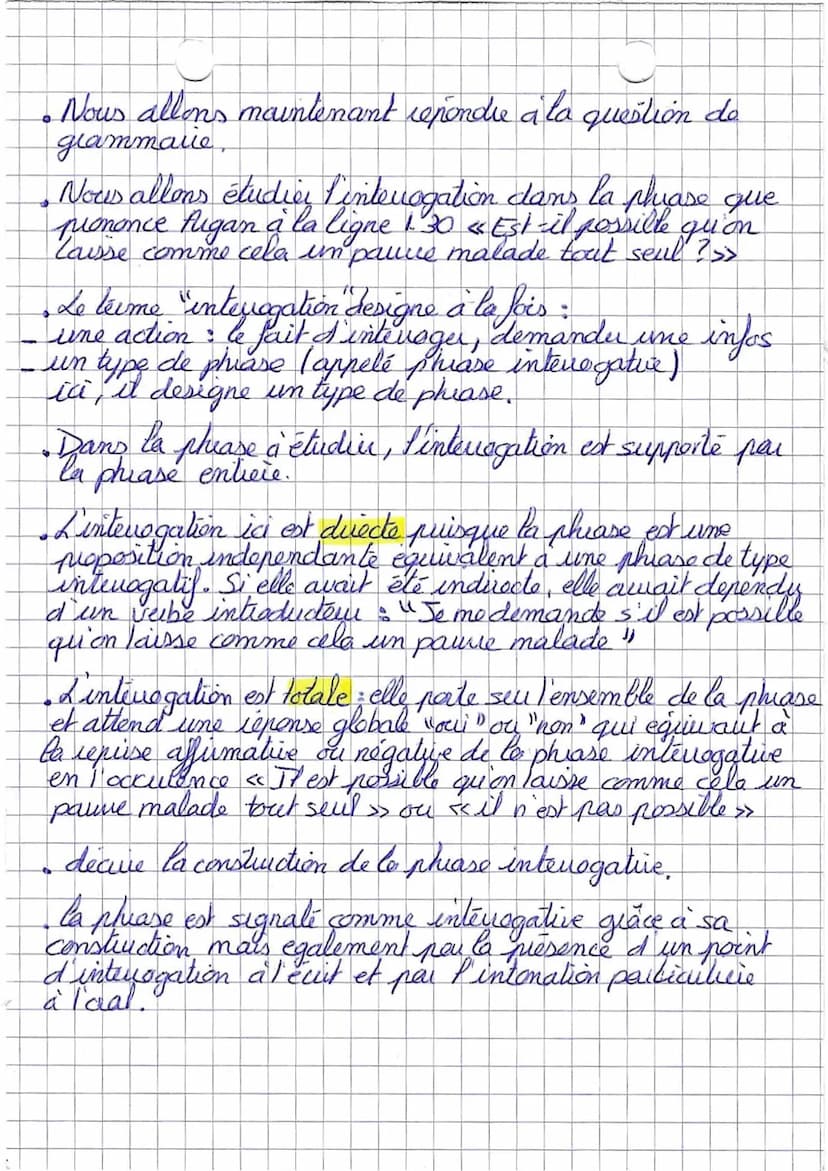 . Nous allons maintenant répondre à la question de
grammaire.
. Nous allons étudier l'interrogation dans la phrase que
prononce Argan à la ligne l.30 « Est-il possible qu'on
laisse comme cela un pauvre malade tout seul ? »
. Le terme "interrogation" designe à la fois :
- une action : le fait d'interroger, demander une infos
- un type de phrase (appelé phrase interrogative)
ici, il designe un type de phrase.
. Dans la phrase à étudier, l'interrogation est supporté par
la phrase entière.
. L'interrogation ici est directe puisque la phrase est une
proposition independante équivalent à une phrase de type
interrogatif. Si elle avait été indirecte, elle aurait dependu
d'un verbe introducteur : "Je me demande s'il est possible
qu'on laisse comme cela un pauvre malade"
. L'interrogation est totale : elle porte seu l'ensemble de la phrase
et attend une réponse globale "oui" ou "non" qui équivaut à
la reprise affirmative ou négative de la phrase interrogative
en l'occurence « Il est possible qu'on laisse comme cela un
pauvre malade tout seul » ou « il n'est pas possible »
. décrire la construction de la phrase interrogative.
. la phrase est signalé comme interrogative grâce à sa
construction mais egalement par la présence d'un point
d'interrogation à l'écrit et par l'intonation particulière
à l'oral.